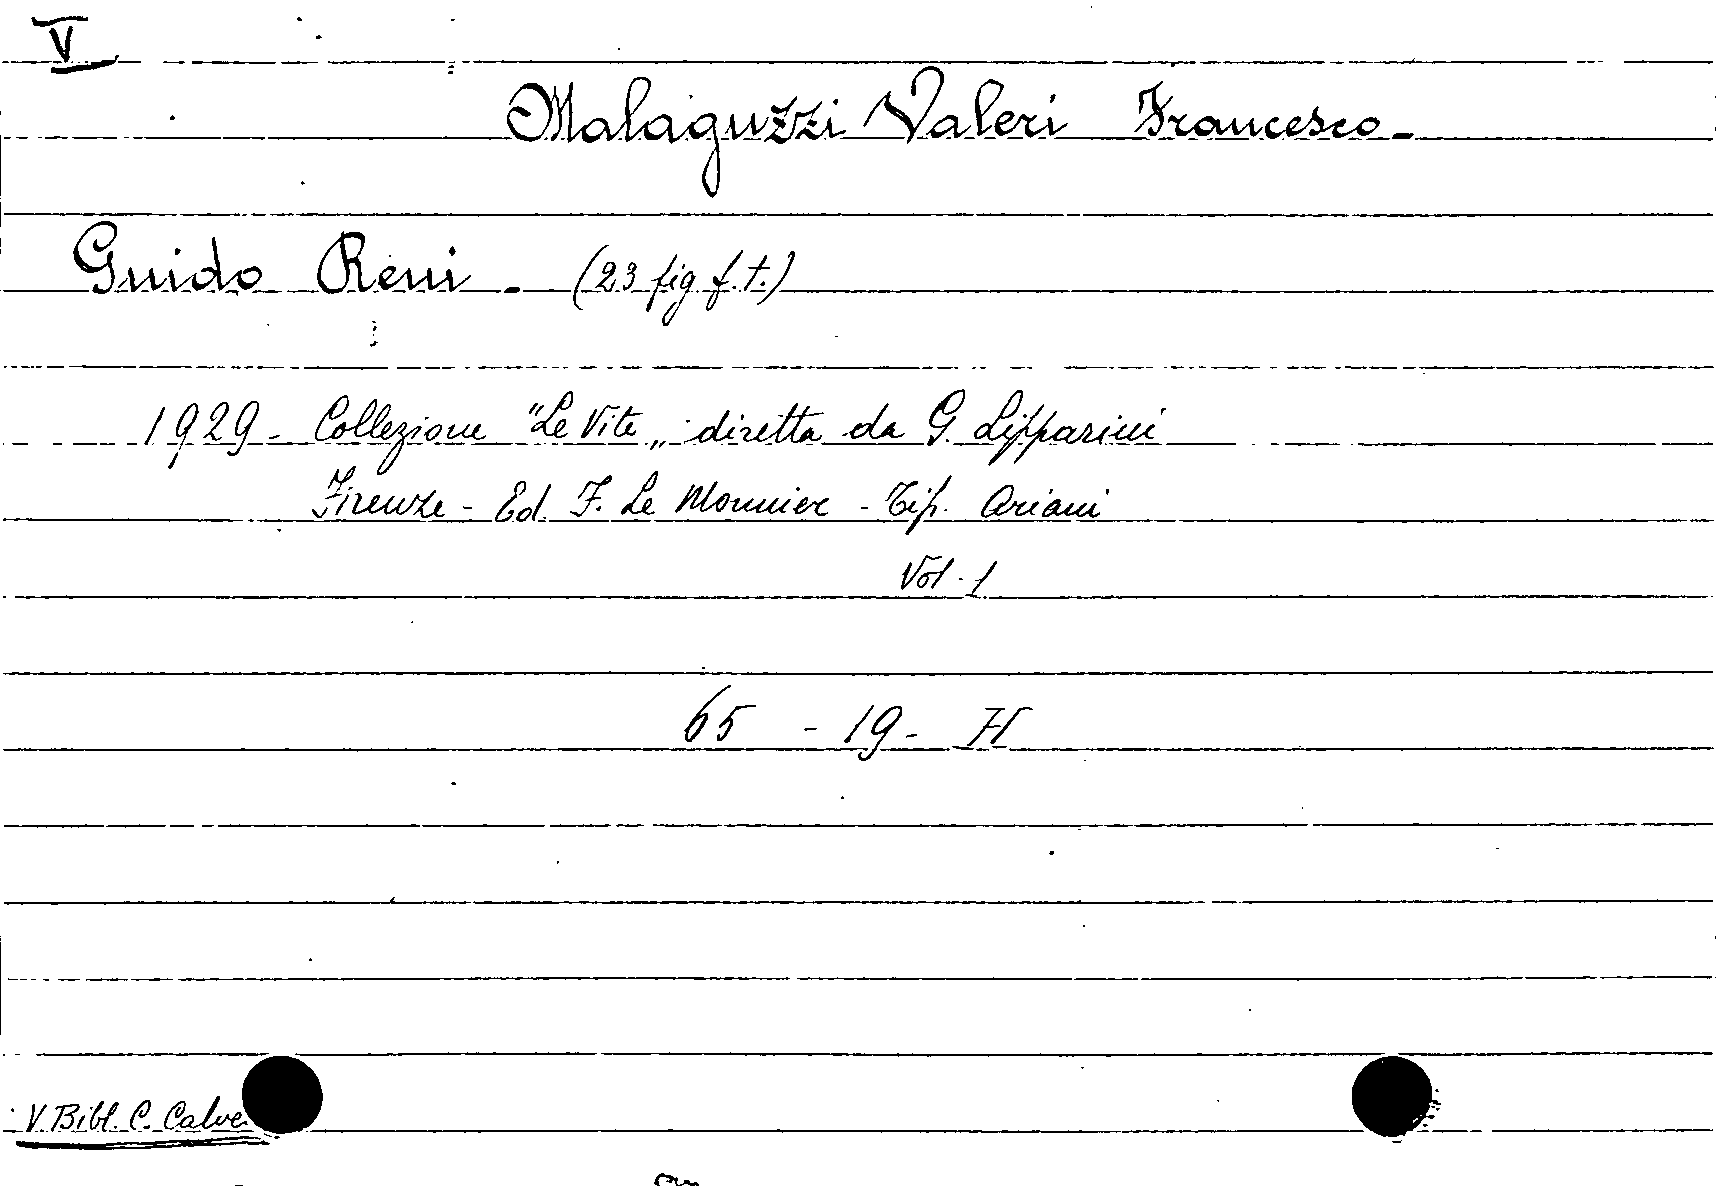 V
Malaguzzi Valeri Francesco-
Guido Reni. (23 fig f.t.)
1929- Collezione "Le Vite„ diretta da G. Lipparini
Firenze - Ed. F. Le Monnier - Tip. Ariani
Vol. 1
65 - 19 - H
V Bibl. C. Calve